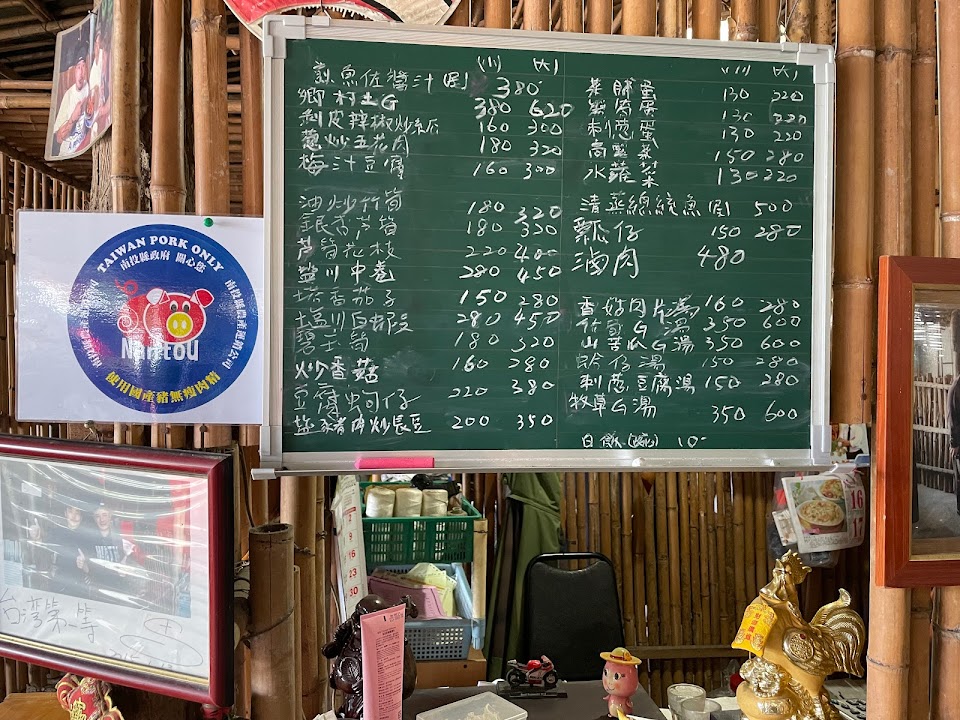 (小) (大)
煎魚佐醬汁(時) 380
鄉村土G 380 620
剝皮辣椒炒 160 300
蔥炒五花肉 180 320
梅汁豆腐 160 300
油炒竹筍 180 320
銀杏芦筍 180 320
芦筍花枝 220 400
塩川中卷 280 450
塔香茄子 150 280
塩川白蝦 280 450
碧玉筍 180 320
炒香菇 160 280
豆腐蚵仔 220 380
盐豬肉炒長豆 200 350
(小) (大)
菜脯蛋 130 220
蛋 130 220
刺蔥蛋 130 220
高麗菜 150 280
水蓮菜 130 220
清蒸總統魚(時) 500
瓢仔 150 280
滷肉 480
香菇肉片湯 160 280
竹筍G湯 350 600
山苦瓜G湯 350 600
蛤仔湯 150 280
刺蔥豆腐湯 150 280
牧草G湯 350 600
白飯(碗) 10-
TAIWAN PORK ONLY
南投縣政府 關心您
南投縣農產運銷公司
Nantou
使用國產豬無瘦肉精
台湾第一等
2
9
16
23
30
16
17